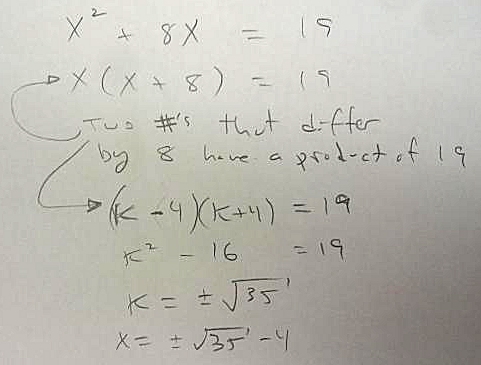 x² + 8x = 19
x(x + 8) = 19
Two #'s that differ
by 8 have a product of 19
(k - 4)(k + 4) = 19
k² - 16 = 19
k = ± √35
x = ± √35 - 4